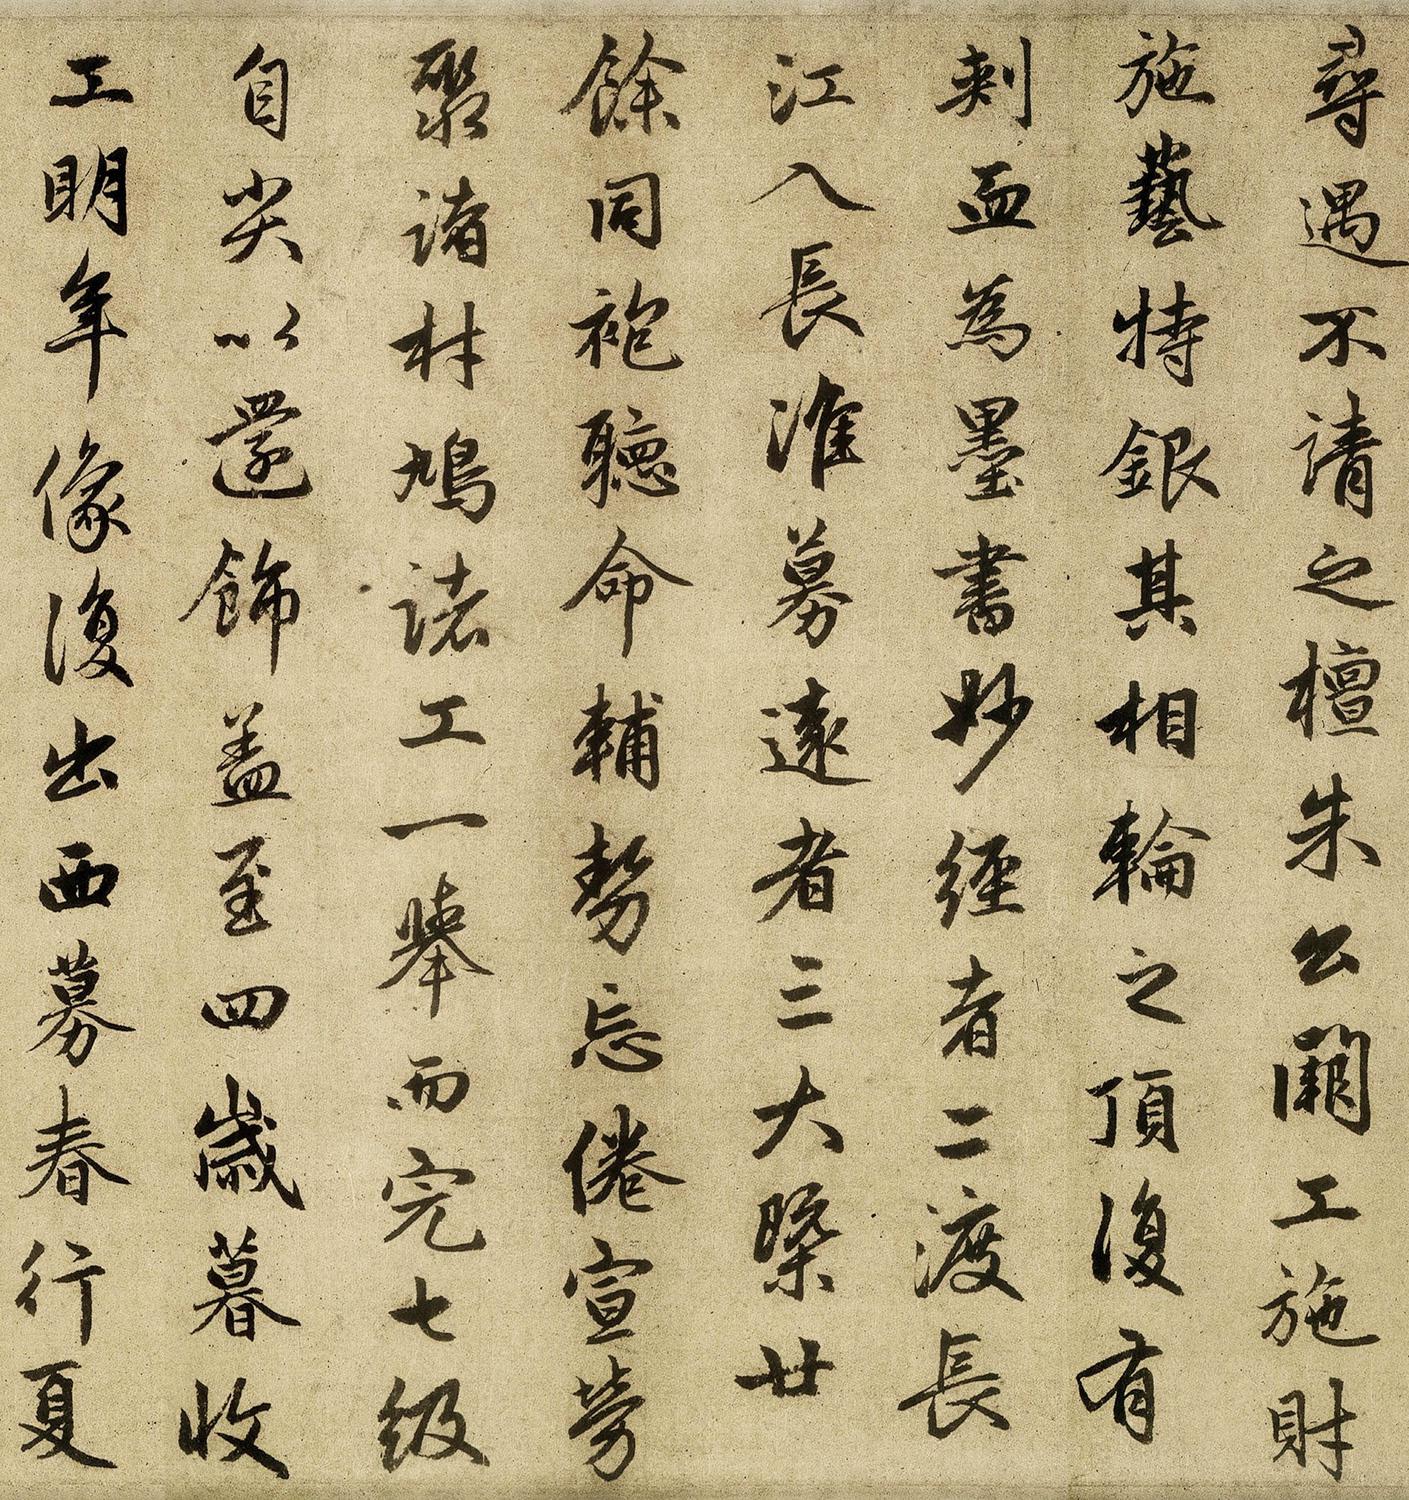 尋遇不請之檀朱公闢工施財
施藝特銀其相輪之頂復有
刺血為墨書妙經者二渡長
江入長淮募遠者三大槩廿
餘同袍聽命輔勢忘倦宣勞
聚諸材鳩諸工一舉而完七級
自尖以還飾盖至四歲暮收
工明年像復出西募春行夏